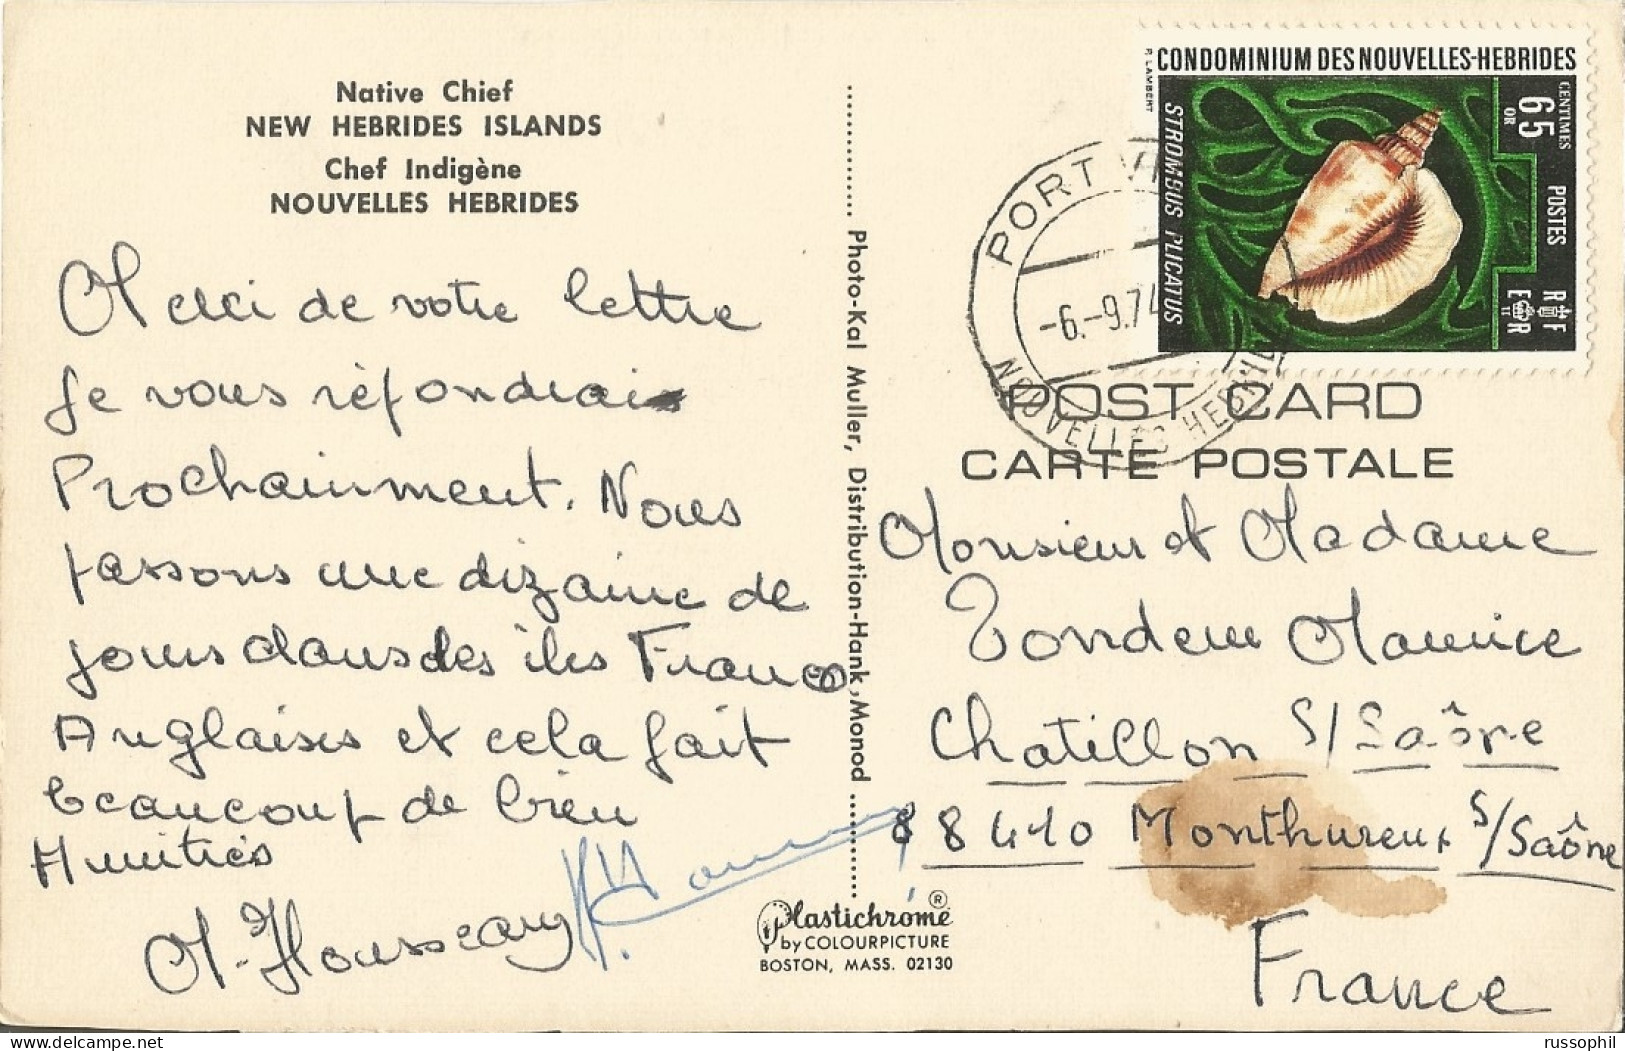 Native Chief
NEW HEBRIDES ISLANDS
Chef Indigène
NOUVELLES HEBRIDES
Merci de votre lettre
Je vous répondrais
Prochainement. Nous
passons une dizaine de
jours dans des iles Franco
Anglaises et cela fait
beaucoup de bien
Amitiés
M. Housseay
Photo-Kal Muller, Distribution-Hank Monod
Plastichrome ®
by COLOURPICTURE
BOSTON, MASS. 02130
CONDOMINIUM DES NOUVELLES-HEBRIDES
P. LAMBERT
STROMBUS PLICATUS
65
CENTIMES
OR
POSTES
RF
E II R
PORT VI
-6.-9.74
NOUVELLES HEBRIDE
POST CARD
CARTE POSTALE
Monsieur et Madame
Tondeur Maurice
Chatillon s/Saône
88410 Monthureux s/Saône
France
russophil